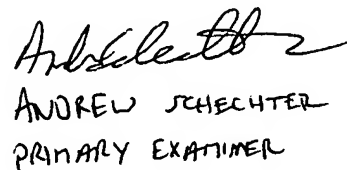 ANDREW SCHECHTER
PRIMARY EXAMINER